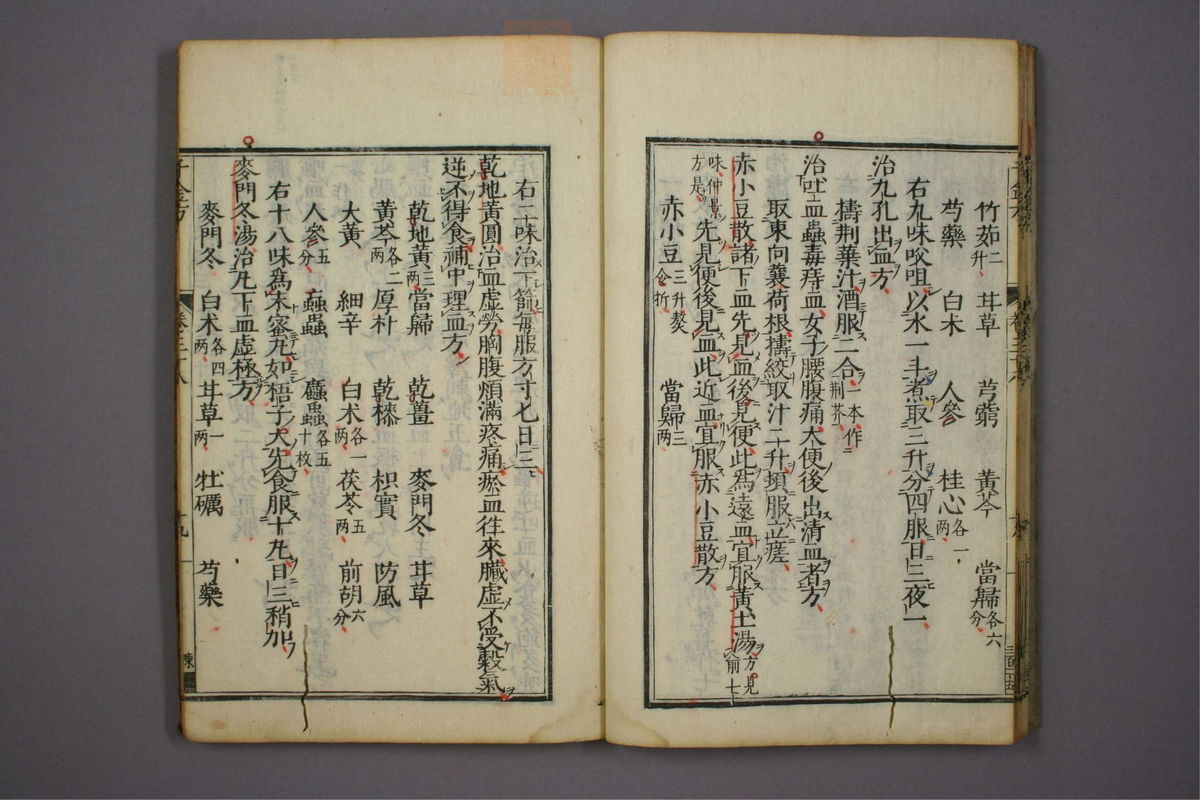 竹茹二升 甘草 芎藭 黃芩 當歸各六分
芍藥 白朮 人參 桂心各一兩
右九味㕮咀以水一斗煮取三升分四服日三夜一
治九孔出血方
擣荆葉汁酒服二合一本作荆芥
治吐血蟲毒痔血女子腰腹痛大便後出清血者方
取東向蘘荷根擣絞取汁二升頓服立瘥
赤小豆散諸下血先見血後見便此爲遠血宜服黃土湯方見前七
味仲景方是先見便後見血此近血宜服赤小豆散方
赤小豆三升熬令拆 當歸三兩
右二味治下篩每服方寸匕日三
乾地黃圓治血虛勞胸腹煩滿疼痛瘀血往來臟虛不受穀氣
逆不得食補中理血方
乾地黃三兩 當歸 乾薑 麥門冬 甘草
黃芩各二兩 厚朴 乾漆 枳實 防風
大黃 細辛 白朮各一兩 茯苓五兩 前胡六分
人參五分 蝱蟲 䗪蟲各五十枚
右十八味爲末蜜丸如梧子大先食服十丸日三稍加
麥門冬湯治九下血虛極方
麥門冬 白朮各四兩 甘草一兩 牡礪 芍藥